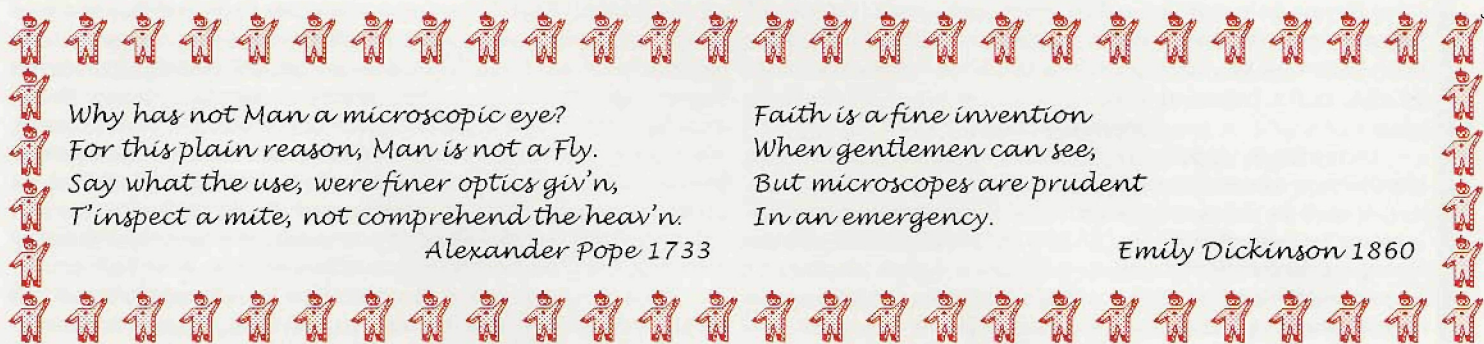 Why has not Man a microscopic eye?
For this plain reason, Man is not a Fly.
Say what the use, were finer optics giv'n,
T'inspect a mite, not comprehend the heav'n.
Alexander Pope 1733
Faith is a fine invention
When gentlemen can see,
But microscopes are prudent
In an emergency.
Emily Dickinson 1860